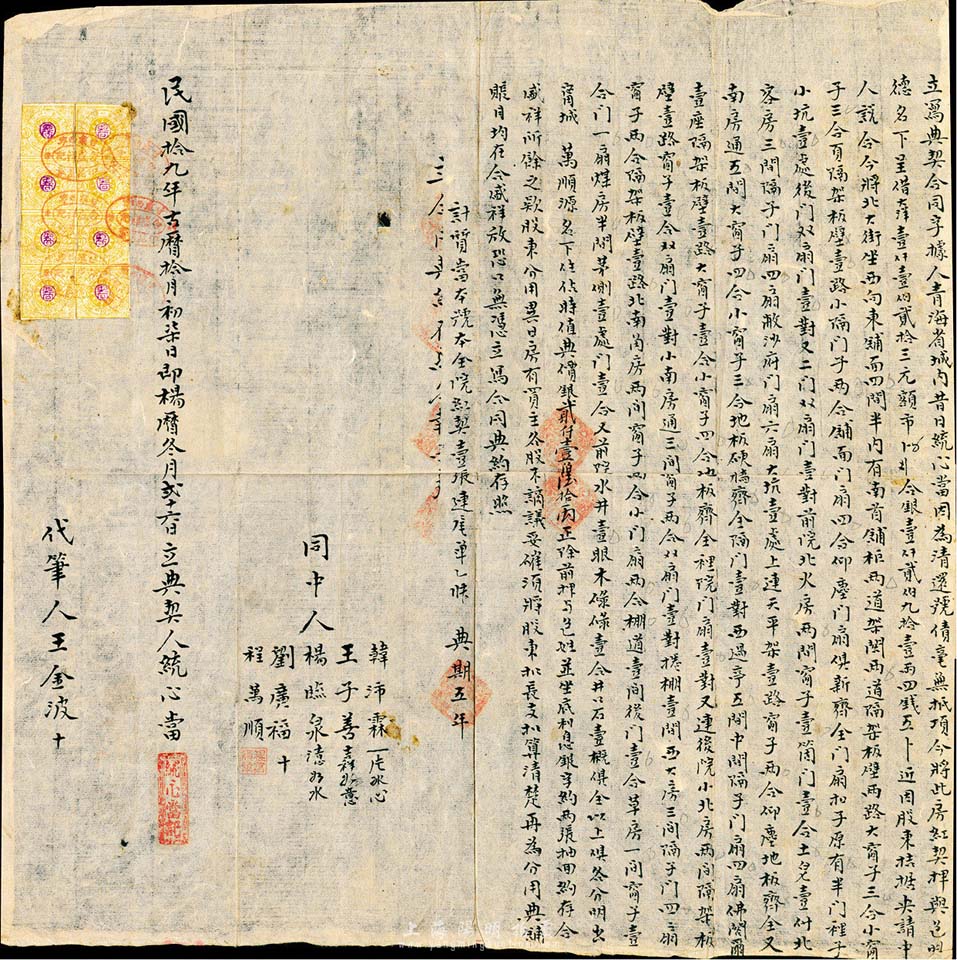 立寫典契合同字據人青海省城内昔日統心當因為清還號債毫無抵項今將此房紅契押與包明
德名下呈借洋壹仟壹佰貳拾三元額市合銀壹仟貳佰九拾壹两四錢五卜近因股東拮据央請中
人説合今將北大街坐西向東舖面四間半内有南首舖柜两道架閣西道隔架板壁西路大窗子三合小窗
子三合頁隔架板壁壹路小隔门子两合舖面门扇四合仰塵门扇俱新齊全门扇扣子原有半门裡子
小坑壹處後门双扇门壹對又二门双扇门壹對前院北火房两間窗子壹箇门壹合土皃壹付北
客房三間隔子门扇四扇敝沙府门扇六扇大坑壹處上連天平架壹路窗子两合仰塵地板齊全又
南房通五間大窗子四合小窗子三合地板硬墙齊全隔门壹對西過亭五間中間隔子门扇四扇佛閣爾
壹座隔架板壁壹路大窗子壹合小窗子四合地板齊全裡院门扇壹對又連後院小北房两間隔架板
壁壹路窗子壹合双扇门壹對小南房通三间窗子两合双扇门壹對捲棚壹間西大房三间隔子门四扇
窗子两合隔架板壁壹路北南角房两间窗子四合小门扇两合棚道壹间後门壹合草房一间窗子壹
合门一扇煤房半間茅側壹處门壹合又前院水井壹眼木碌碌壹合井口石壹概俱全以上俱各分明出
甯城 萬順源名下住佔時值典價銀貳仟壹佰陸拾两正除前押與包姓並坐底利息銀字約两張抽回約存合
盛祥所餘之欵股東分用異日房有買主各股不謫議妥確須將股東扣長支扣算清楚再為分用典舖
賬目均在合盛祥放恐口無憑立寫合同典約存照
計質當本號本全院紅契壹張連底單乙帋 典期五年
同中人
韓沛霖 一片冰心
王子善
楊照泉
劉廣福 十
程萬順
民國拾九年古曆拾月初柒日即楊曆冬月弍十六日立典契人統心當
統心當記
代筆人王金波十
上海陽明拍卖